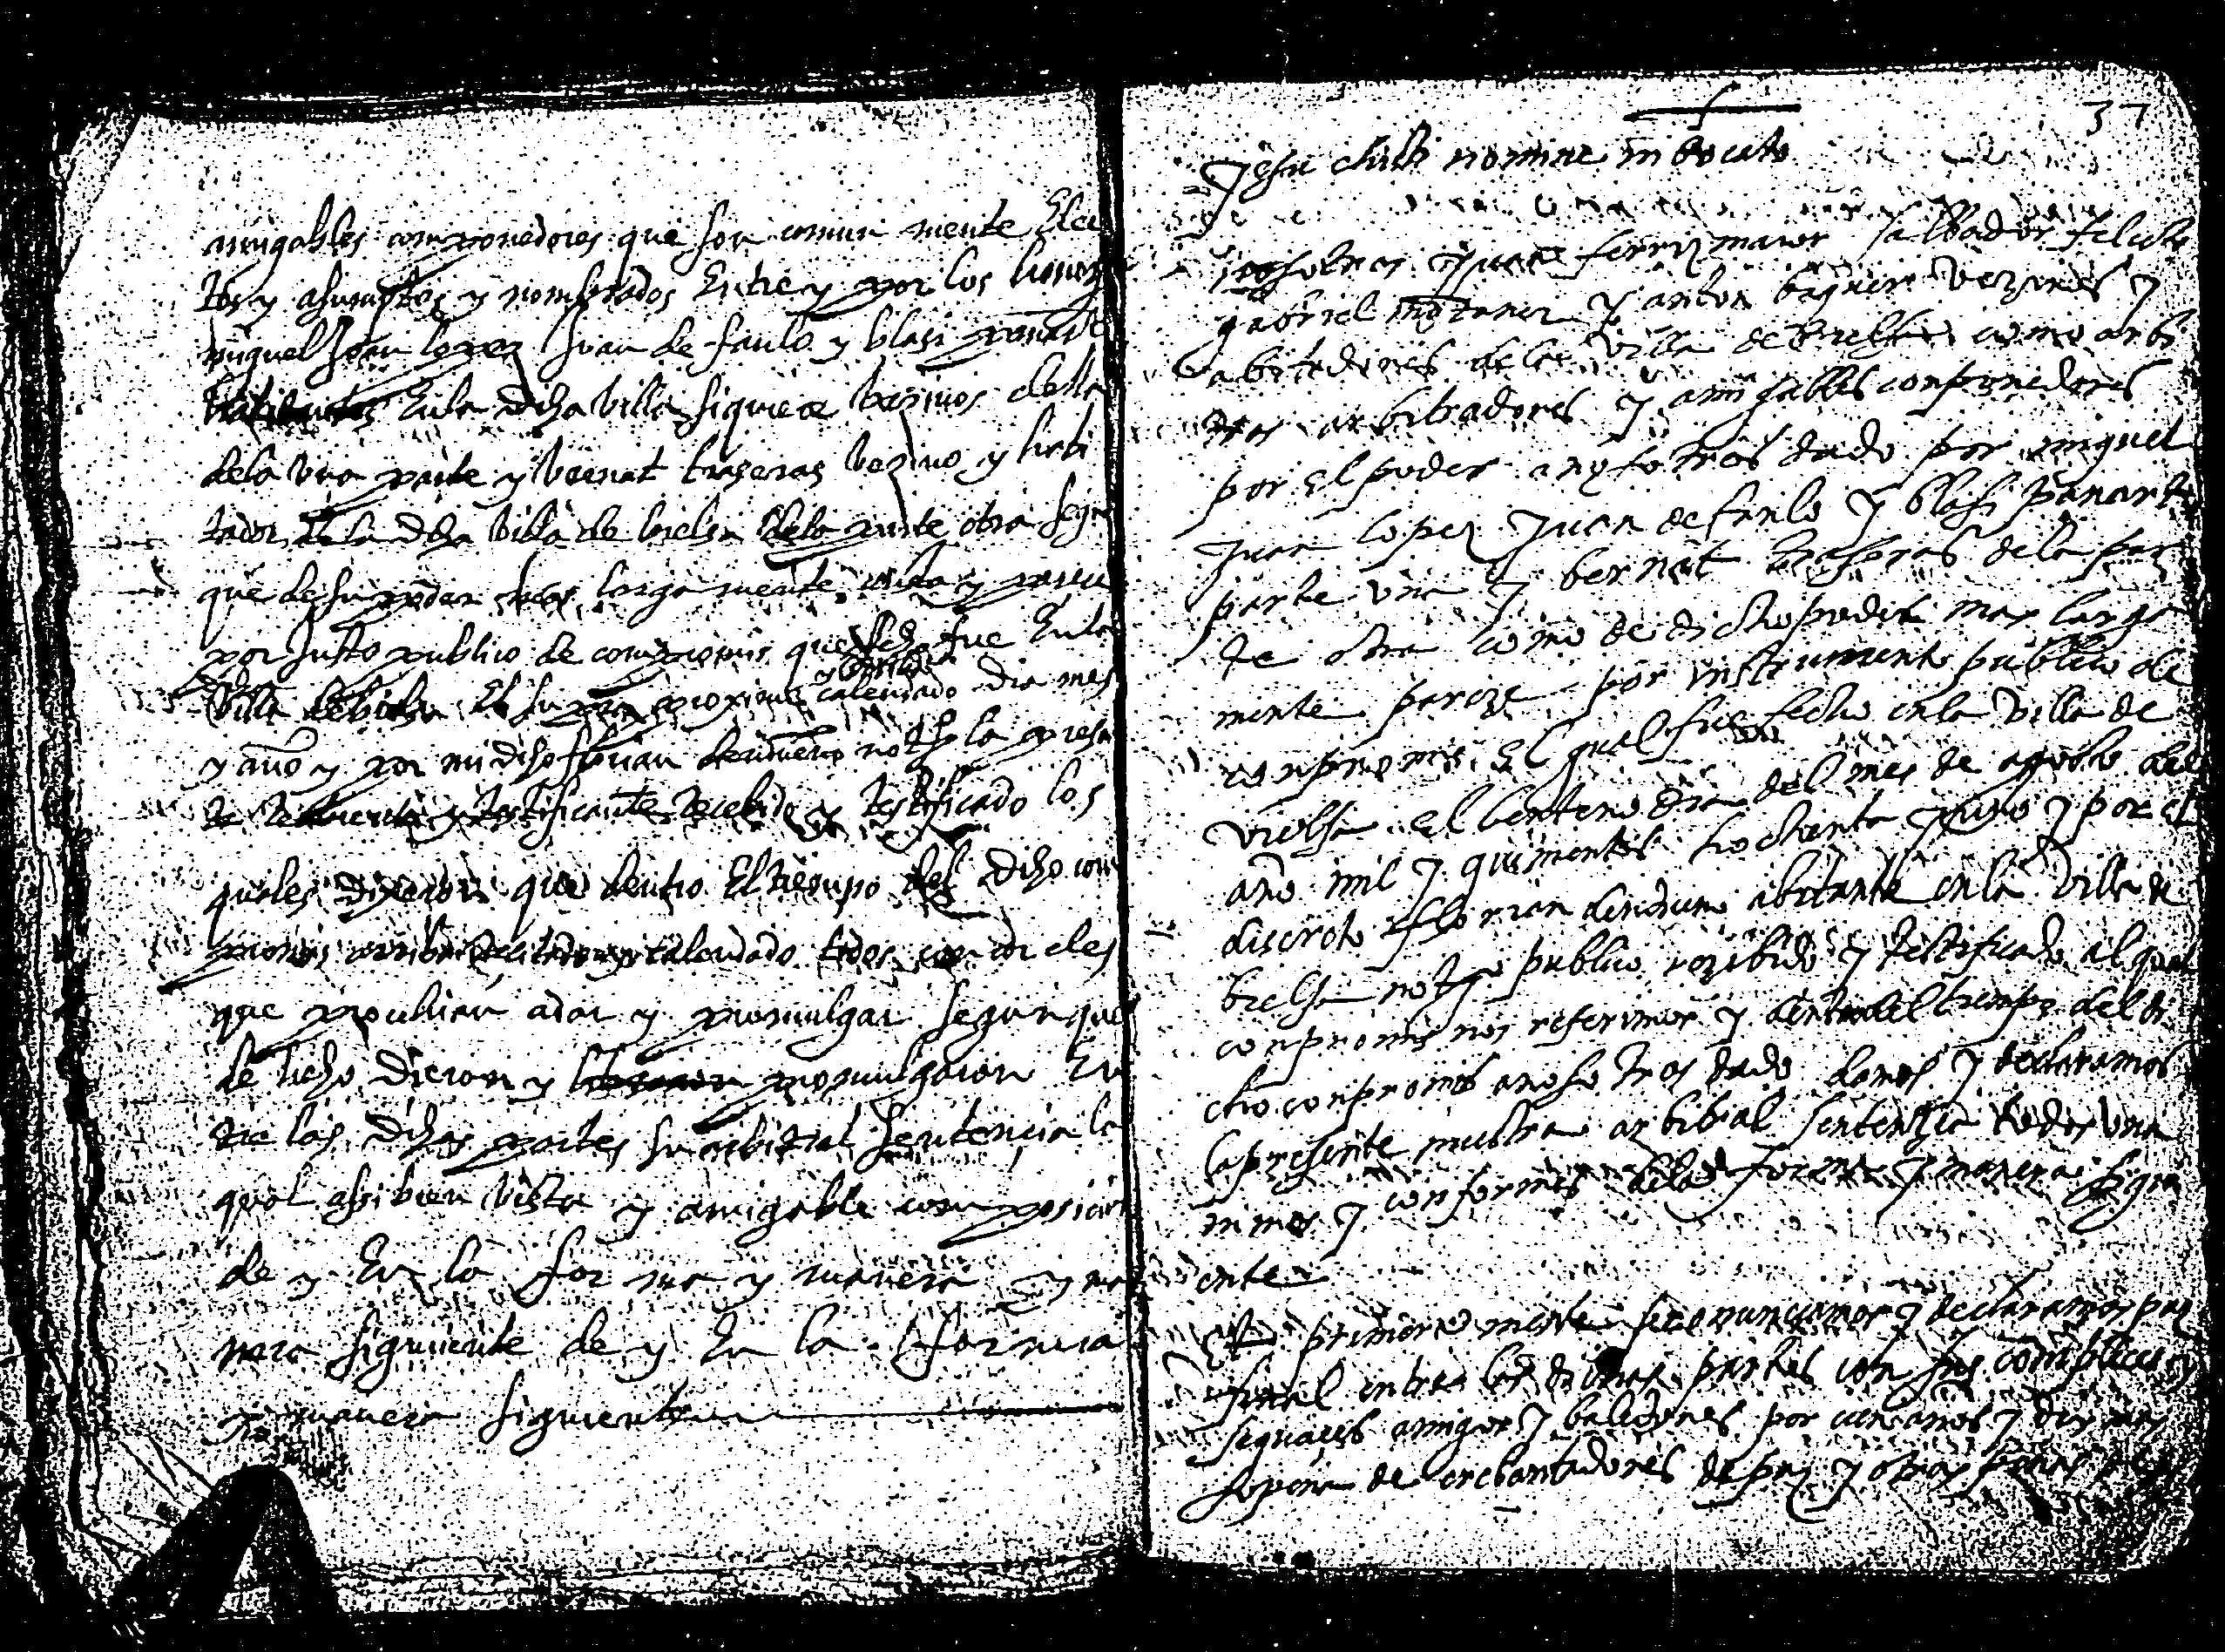 amigables componedores que son comun mente Elec
tos y asumptos y nombrados Entre y por los honor
miguel Joan lopez Juan de faulo y blasi panart
habitantes En la dha villa siquiere terminos della
dela una parte y bernat trageras vezino y habi
tador de la dha villa de bielsa dela parte otra segun
que de su poder mas larga mente consta y pareze
por Justo publico de compromis que fecho fue En la
villa de bielsa El su proxime calendado dia mes
y año y por mi dicho florian not la presen
te testificante recebido y testificado los
quales dixeron que dentro El tiempo del dicho com
promis arriba recitado y calendado todos concordes
que proubian a dar y promulgar segun que
de hecho dieron y promulgaron En
tre las dichas partes su arbitral sentencia la
qual assi bien vista y amigable composicion
de y En la forma y manera y ma
nera siguiente de y En la forma
y manera siguiente
37
Jesu christi nomine inbocato
nosotros Juan ferriz maior salbador feleste
gabriel motaner y anton bagner vezinos y
abitadores dela villa de bielsa como arbi
tros arbitradores y amigables conponedores
por el poder a nosotros dado por miguel
Juan lopez Juan de faulo y blasi panart
parte una y bernat trageras dela par
te otra como de dicho poder mas larga
mente pareze por instrumento publico de
conpromis El qual fue fecho en la villa de
vielsa el benteno dia del mes de agosto del
año mil y quinientos hochanta y uno y por el
discreto florian abitante en la villa de
bielsa not publico rezibido y testificado al qual
conpromis nos referimos y dentro del tiempo del di
cho conpromis a nosotros dado damos y declaramos
la presente nuestra arbitral sentenzia todos una
nimes y conformes dela forma y manera sigui
ente
Et primera mente sentenciamos y declaramos paz
final entre las dichas partes con sus conplices y
sequaces amigos y baledores por cien años y dia
so pena de crebantadores de paz y otras penas